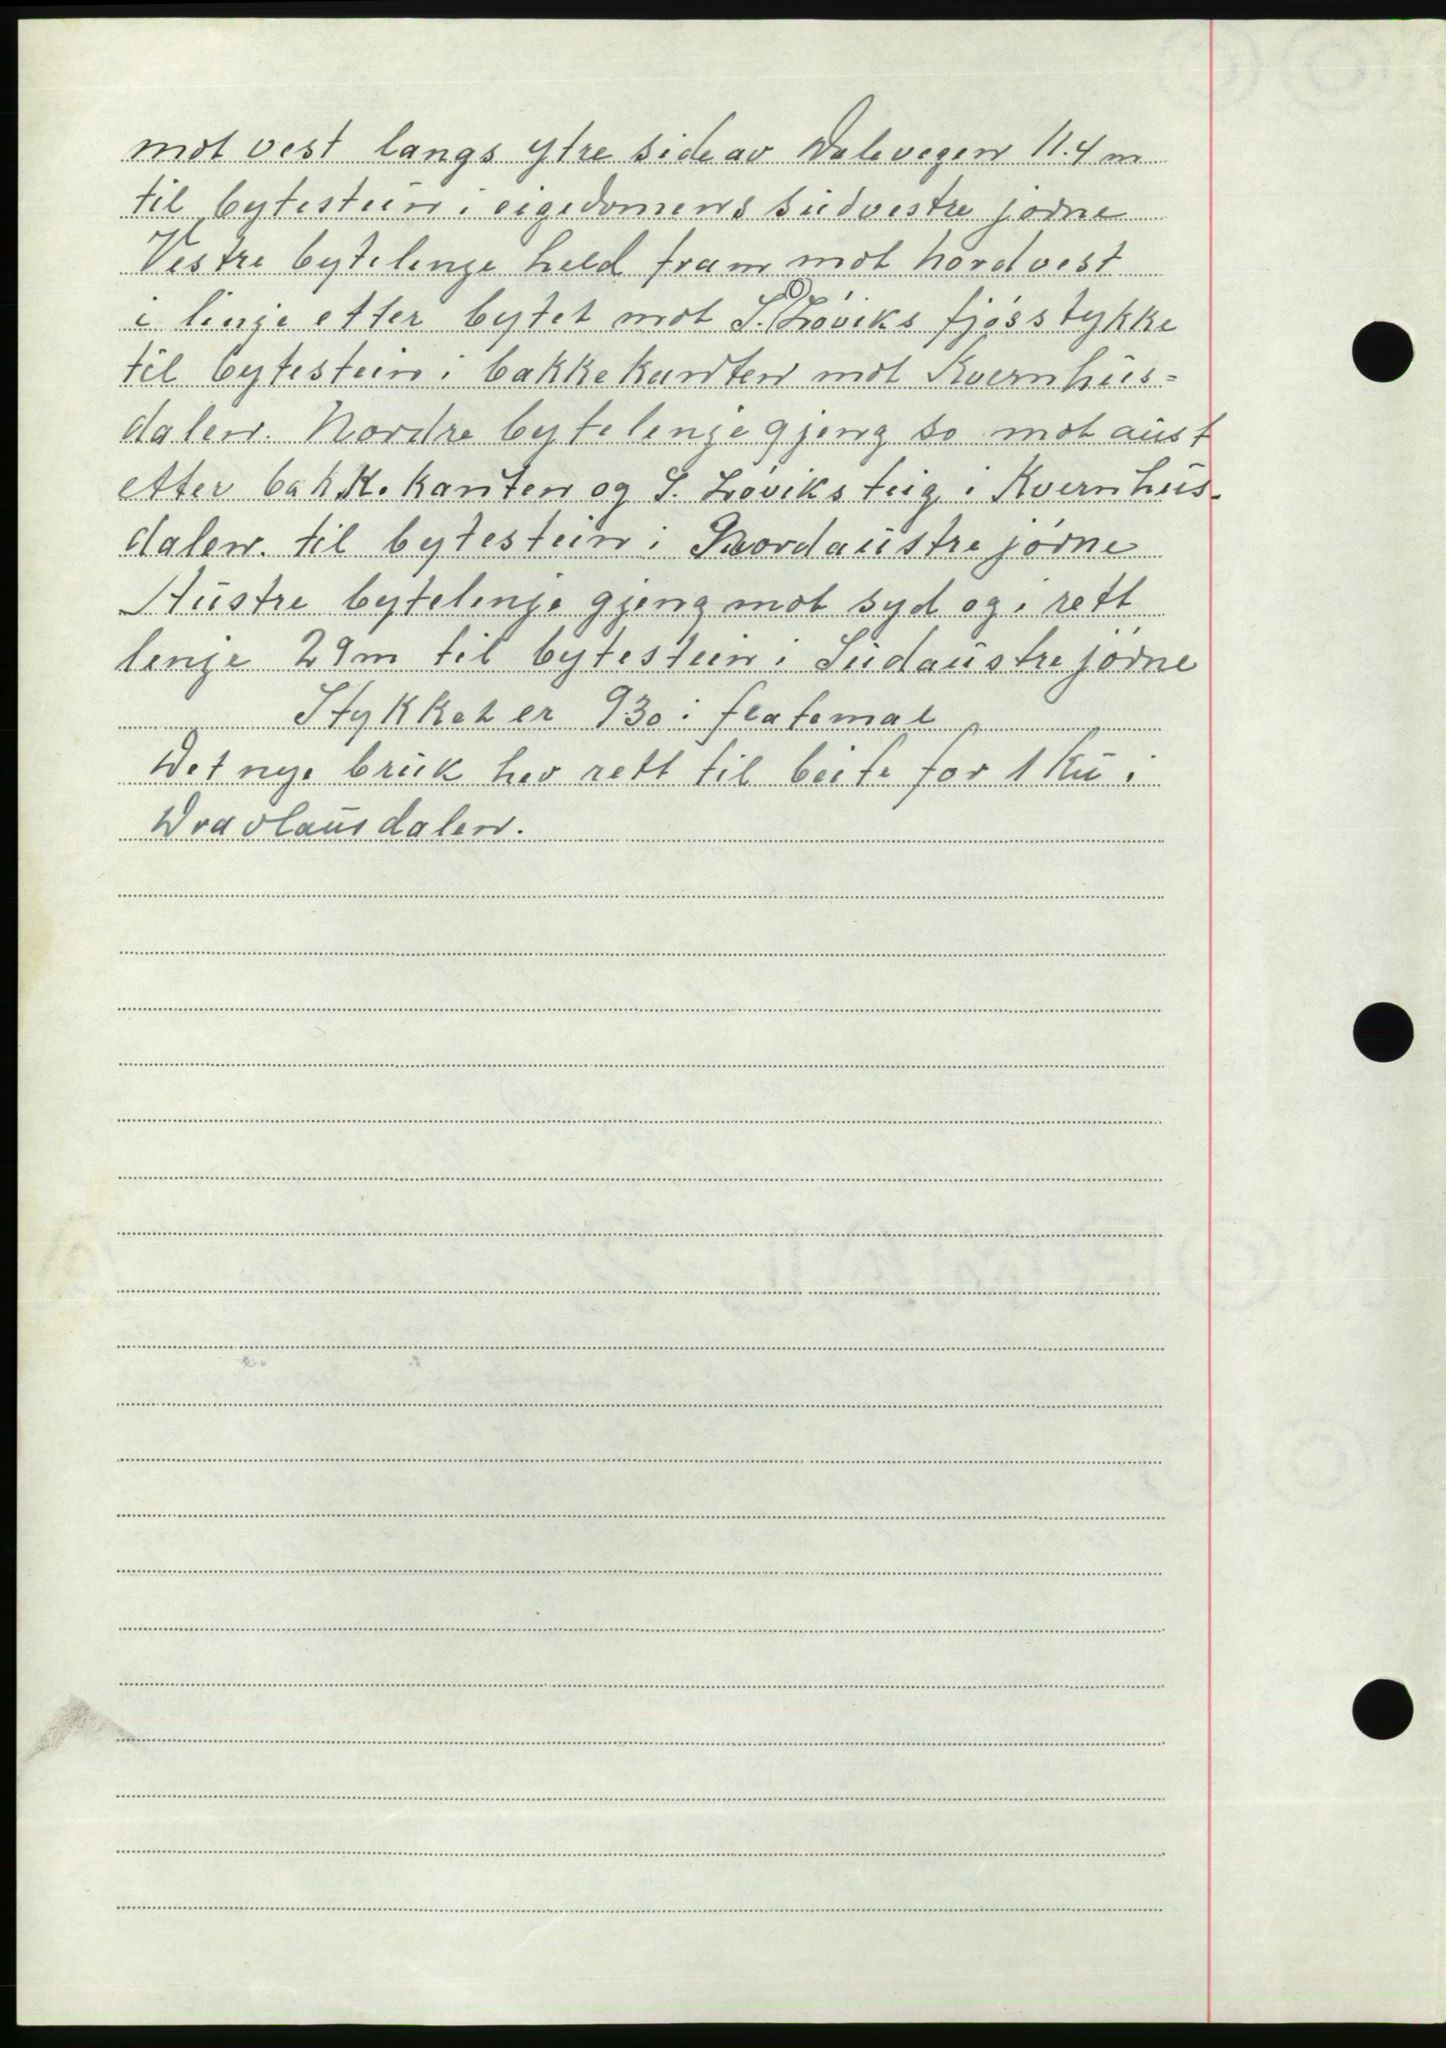 mot vest langs ytre side av Dalevegen 11.4 m
til bytestein i eigedomens sudvestre jørne
Vestre bytelenje held fram mot nordvest
i linje etter bytet mot S. O Løviks fjøsstykke
til bytestein i bakkekanten mot Kvernhus=
dalen. Nordre bytelenje gjeng so mot aust
etter bakk.kanten og S. Løviks teig i Kvernhus-
dalen. til bytestein i Nordaustre jørne
Austre bytelenje gjeng mot syd og i rett
lenje 29 m til bytestein i Sudaustre jørne
Stykket er 930 i flatemal
Det nye bruk hev rett til beite for 1 Ku i
Dravlausdalen.